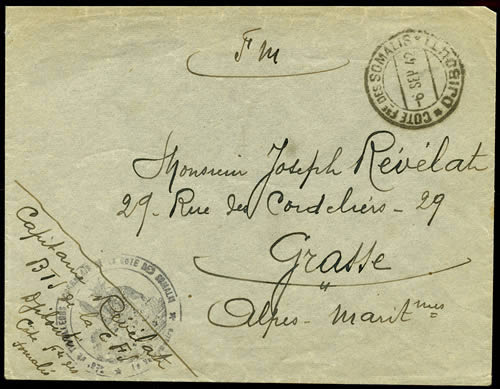 F M
DJIBOUTI * COTE FSE DES SOMALIS *
6 SEP 42
Monsieur Joseph Révélat
29 - Rue des Cordeliers - 29
Grasse
Alpes - Maritmes
Capitaine Révélat
de la CFS
Djibouti
Côte fse des
Somalis
COTE DES SOMALIS